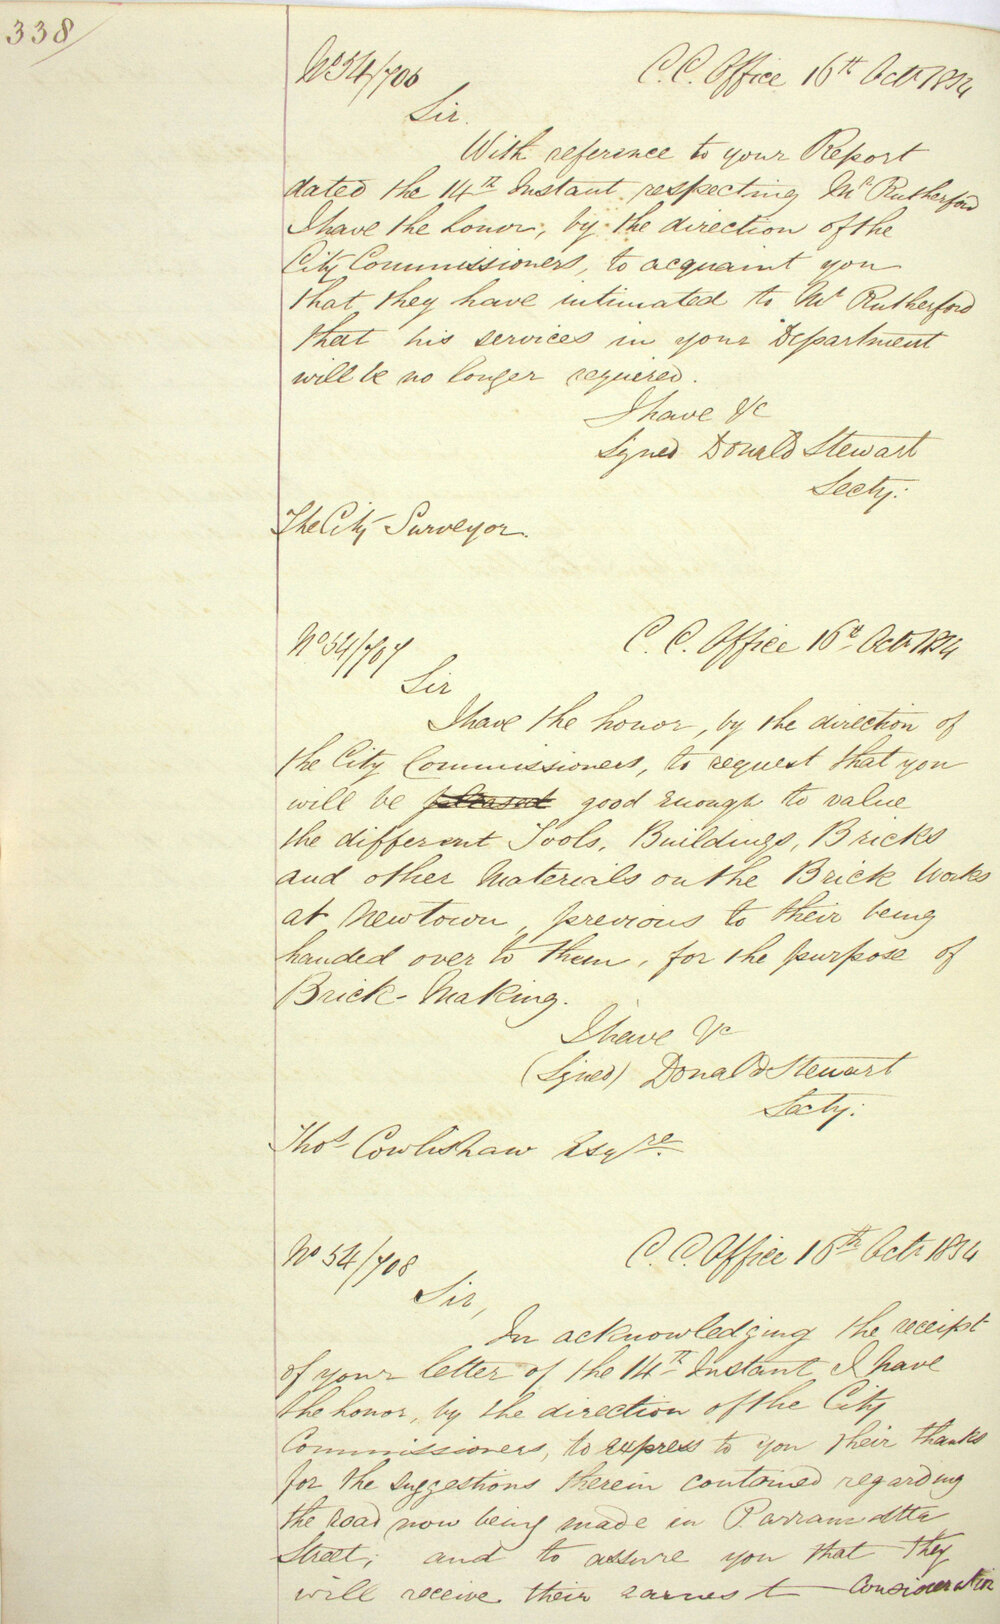 338
No 54/706 C. C. Office 16th Octr 1854
Sir.
With reference to your Report
dated the 14th Instant respecting Mr Rutherford
I have the honor, by the direction of the
City Commissioners, to acquaint you
that they have intimated to Mr Rutherford
that his services in your Department
will be no longer required.
I have &c
Signed Donald Stewart
Secty:
The City Surveyor.
No 54/707 C. C. Office 16th Octr 1854
Sir
I have the honor, by the direction of
the City Commissioners, to request that you
will be pleased good enough to value
the different Tools, Buildings, Bricks
and other Materials on the Brick Works
at Newtown, previous to their being
handed over to them, for the purpose of
Brick-Making.
I have &c
(Signed) Donald Stewart
Secty:
Thos Cowlishaw Esqre
No 54/708 C. C. Office 16th Octr 1854
Sir,
In acknowledging the receipt
of your letter of the 14th Instant I have
the honor, by the direction of the City
Commissioners, to express to you their thanks
for the suggestions therein contained regarding
the road now being made in Parramatta
Street; and to assure you that they
will receive their earnest consideration